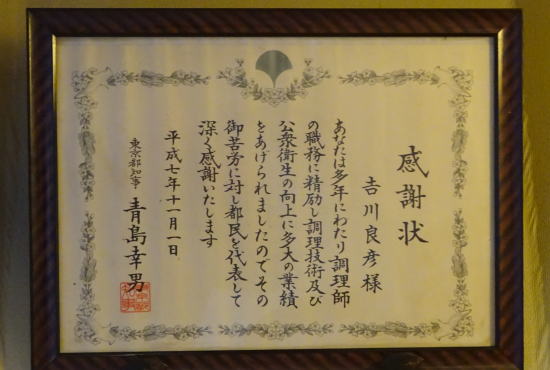 感謝状
吉川良彦様
あなたは多年にわたり調理師
の職務に精励し調理技術及び
公衆衛生の向上に多大の業績
をあげられましたのでその
御苦労に対し都民を代表して
深く感謝いたします
平成七年十一月一日
東京都知事 青島幸男